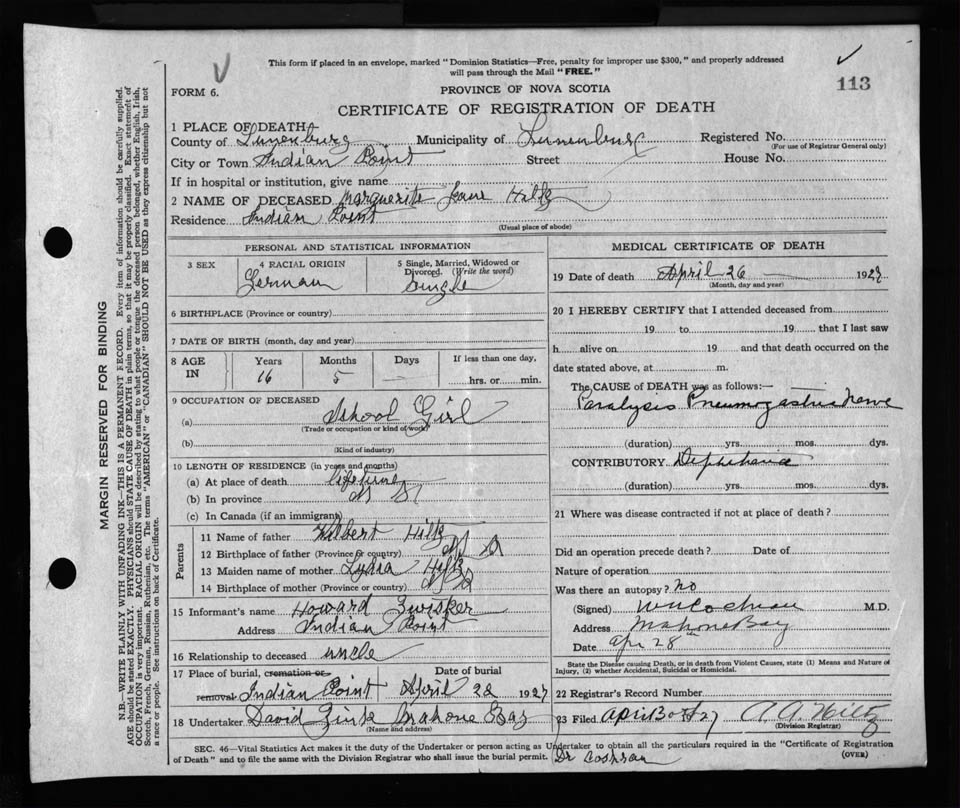 This form if placed in an envelope, marked "Dominion Statistics—Free, penalty for improper use $300," and properly addressed
will pass through the Mail "FREE."
113
FORM 6.
PROVINCE OF NOVA SCOTIA
CERTIFICATE OF REGISTRATION OF DEATH
1 PLACE OF DEATH
County of Lunenburg Municipality of Lunenburg Registered No.
(For use of Registrar General only)
City or Town Indian Point Street House No.
If in hospital or institution, give name
2 NAME OF DECEASED Marguerite Jean Hiltz
Residence Indian Point
(Usual place of abode)
PERSONAL AND STATISTICAL INFORMATION
3 SEX 4 RACIAL ORIGIN 5 Single, Married, Widowed or
Divorced. (Write the word)
German Single
6 BIRTHPLACE (Province or country)
7 DATE OF BIRTH (month, day and year)
8 AGE IN Years Months Days If less than one day,
16 5 — hrs. or min.
9 OCCUPATION OF DECEASED
(a) School Girl
(Trade or occupation or kind of work)
(b)
(Kind of industry)
10 LENGTH OF RESIDENCE (in years and months)
(a) At place of death lifetime
(b) In province
(c) In Canada (if an immigrant)
Parents
11 Name of father Wilbert Hiltz
12 Birthplace of father (Province or country) N S
13 Maiden name of mother Lydia Hiltz
14 Birthplace of mother (Province or country) N S
15 Informant's name Howard Zwisker
Address Indian Point
16 Relationship to deceased uncle
17 Place of burial, cremation or Date of burial
removal Indian Point April 28 1927
18 Undertaker David Zink Mahone Bay
(Name and address)
MEDICAL CERTIFICATE OF DEATH
19 Date of death April 26 — 1927
(Month, day and year)
20 I HEREBY CERTIFY that I attended deceased from
19 to 19 that I last saw
h alive on 19 and that death occurred on the
date stated above, at m.
The CAUSE OF DEATH was as follows:—
Paralysis Pneumogastric Nerve
(duration) yrs. mos. dys.
CONTRIBUTORY Diphtheria
(duration) yrs. mos. dys.
21 Where was disease contracted if not at place of death?
Did an operation precede death? Date of
Nature of operation
Was there an autopsy? no
(Signed) W N Cochran M.D.
Address Mahone Bay
Date Apr 28th
State the Disease causing Death, or in death from Violent Causes, state (1) Means and Nature of
Injury, (2) whether Accidental, Suicidal or Homicidal.
22 Registrar's Record Number
23 Filed April 30 27 A. A. Hiltz
(Division Registrar)
SEC. 46—Vital Statistics Act makes it the duty of the Undertaker or person acting as Undertaker to obtain all the particulars required in the "Certificate of Registration
of Death" and to file the same with the Division Registrar who shall issue the burial permit. Dr Cochran
(OVER)
MARGIN RESERVED FOR BINDING
N.B.—WRITE PLAINLY WITH UNFADING INK—THIS IS A PERMANENT RECORD. Every item of information should be carefully supplied.
AGE should be stated EXACTLY. PHYSICIANS should STATE CAUSE OF DEATH in plain terms, so that it may be properly classified. Exact statement of
OCCUPATION is very important. RACIAL ORIGIN will be described by stating to what people or tongue the deceased person belonged, whether English, Irish,
Scotch, French, German, Russian, Ruthenian, etc. The terms "AMERICAN" or "CANADIAN" SHOULD NOT BE USED as they express citizenship but not
a race or people. See instructions on back of Certificate.